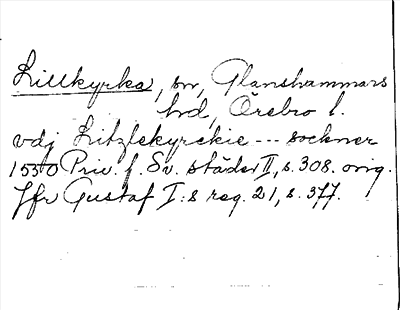 Lillkyrka, sn, Glanshammars
hd, Örebro l.
vdj Litzlekyrckie --- sockner
1550 Priv. f. Sv. städer II, s. 308. orig.
Jfr Gustaf I:s reg. 21, s. 377.